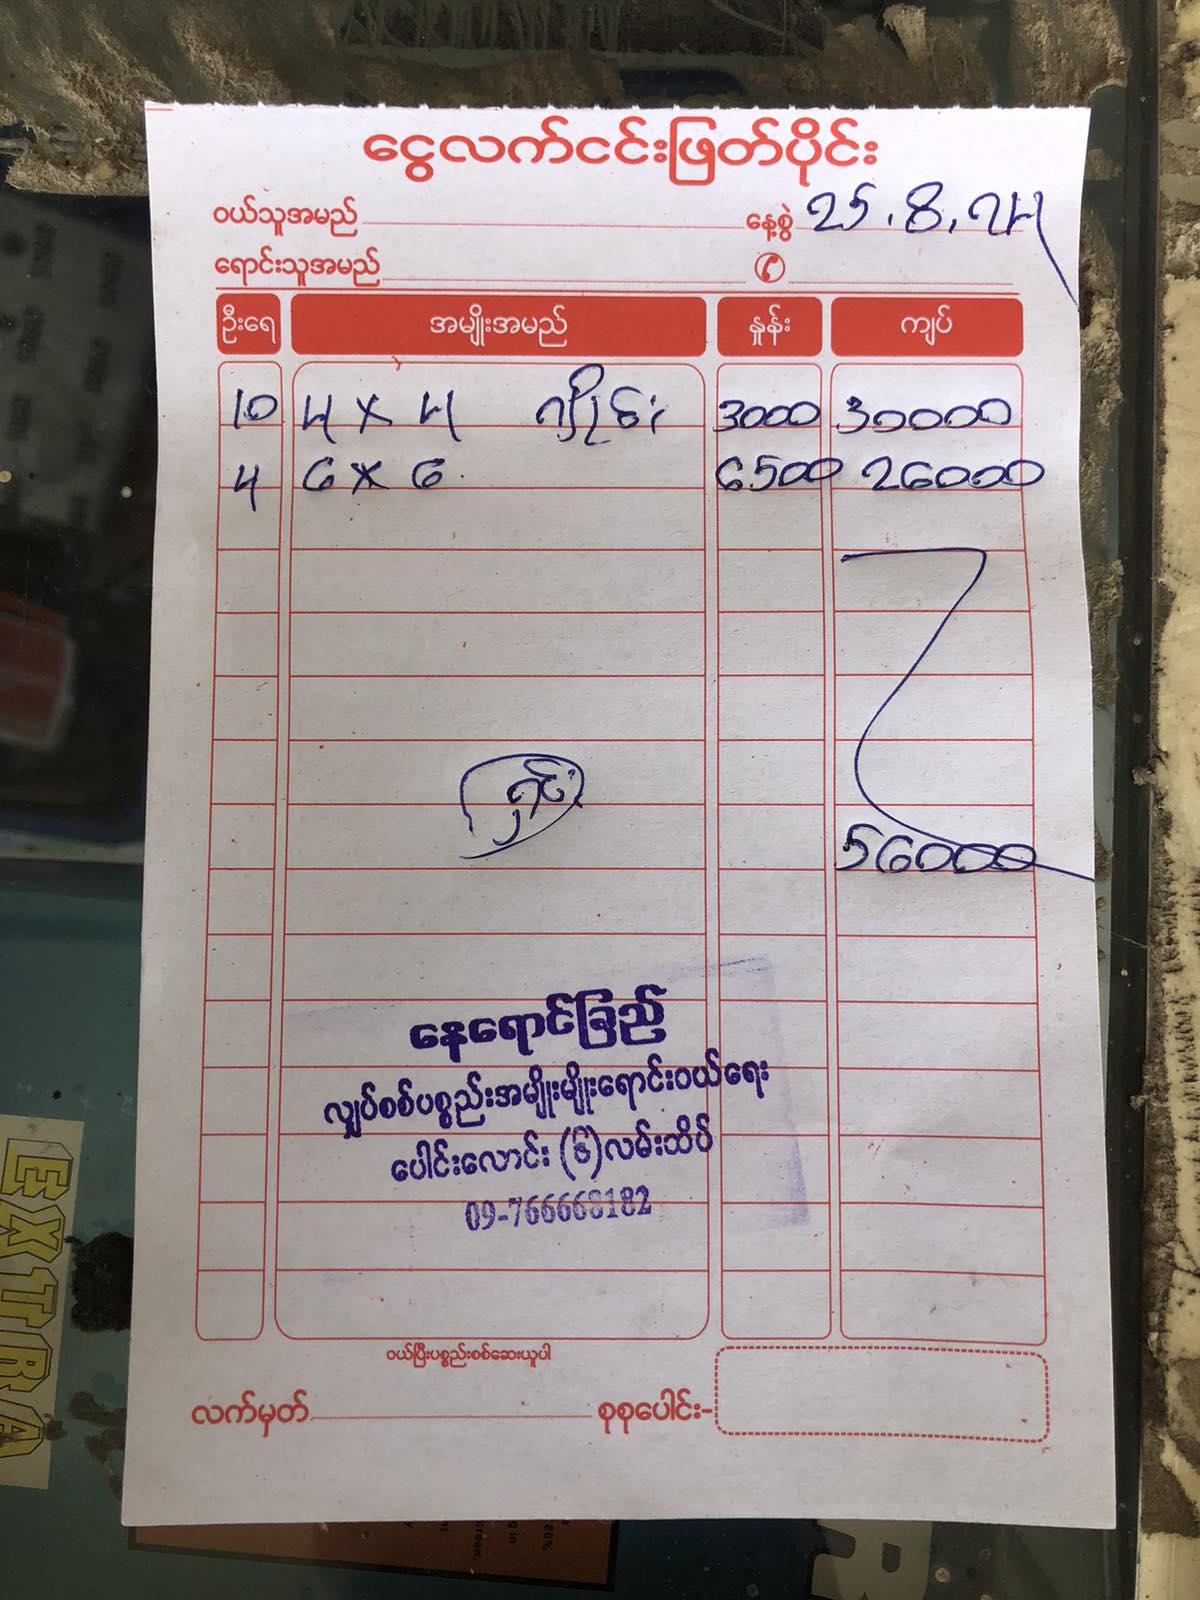 ငွေလက်ငင်းဖြတ်ပိုင်း
ဝယ်သူအမည် နေ့စွဲ 25.8.24
ရောင်းသူအမည်
ဦးရေ အမျိုးအမည် နှုန်း ကျပ်
10 4 x 4 ဂျိုင်း 3000 30000
4 6 x 6 6500 26000
ရှင်း
56000
နေရောင်ခြည်
လျှပ်စစ်ပစ္စည်းအမျိုးမျိုးရောင်းဝယ်ရေး
ပေါင်းလောင်း (၆)လမ်းထိပ်
09-766668182
ဝယ်ပြီးပစ္စည်းစစ်ဆေးယူပါ
လက်မှတ် စုစုပေါင်း-
EXTRA